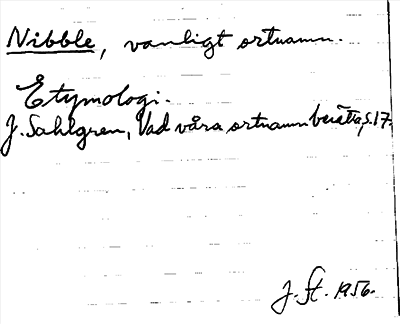 Nibble, vanligt ortnamn.
Etymologi.
J. Sahlgren, Vad våra ortnamn berätta, s. 17.
J. St. 1956.